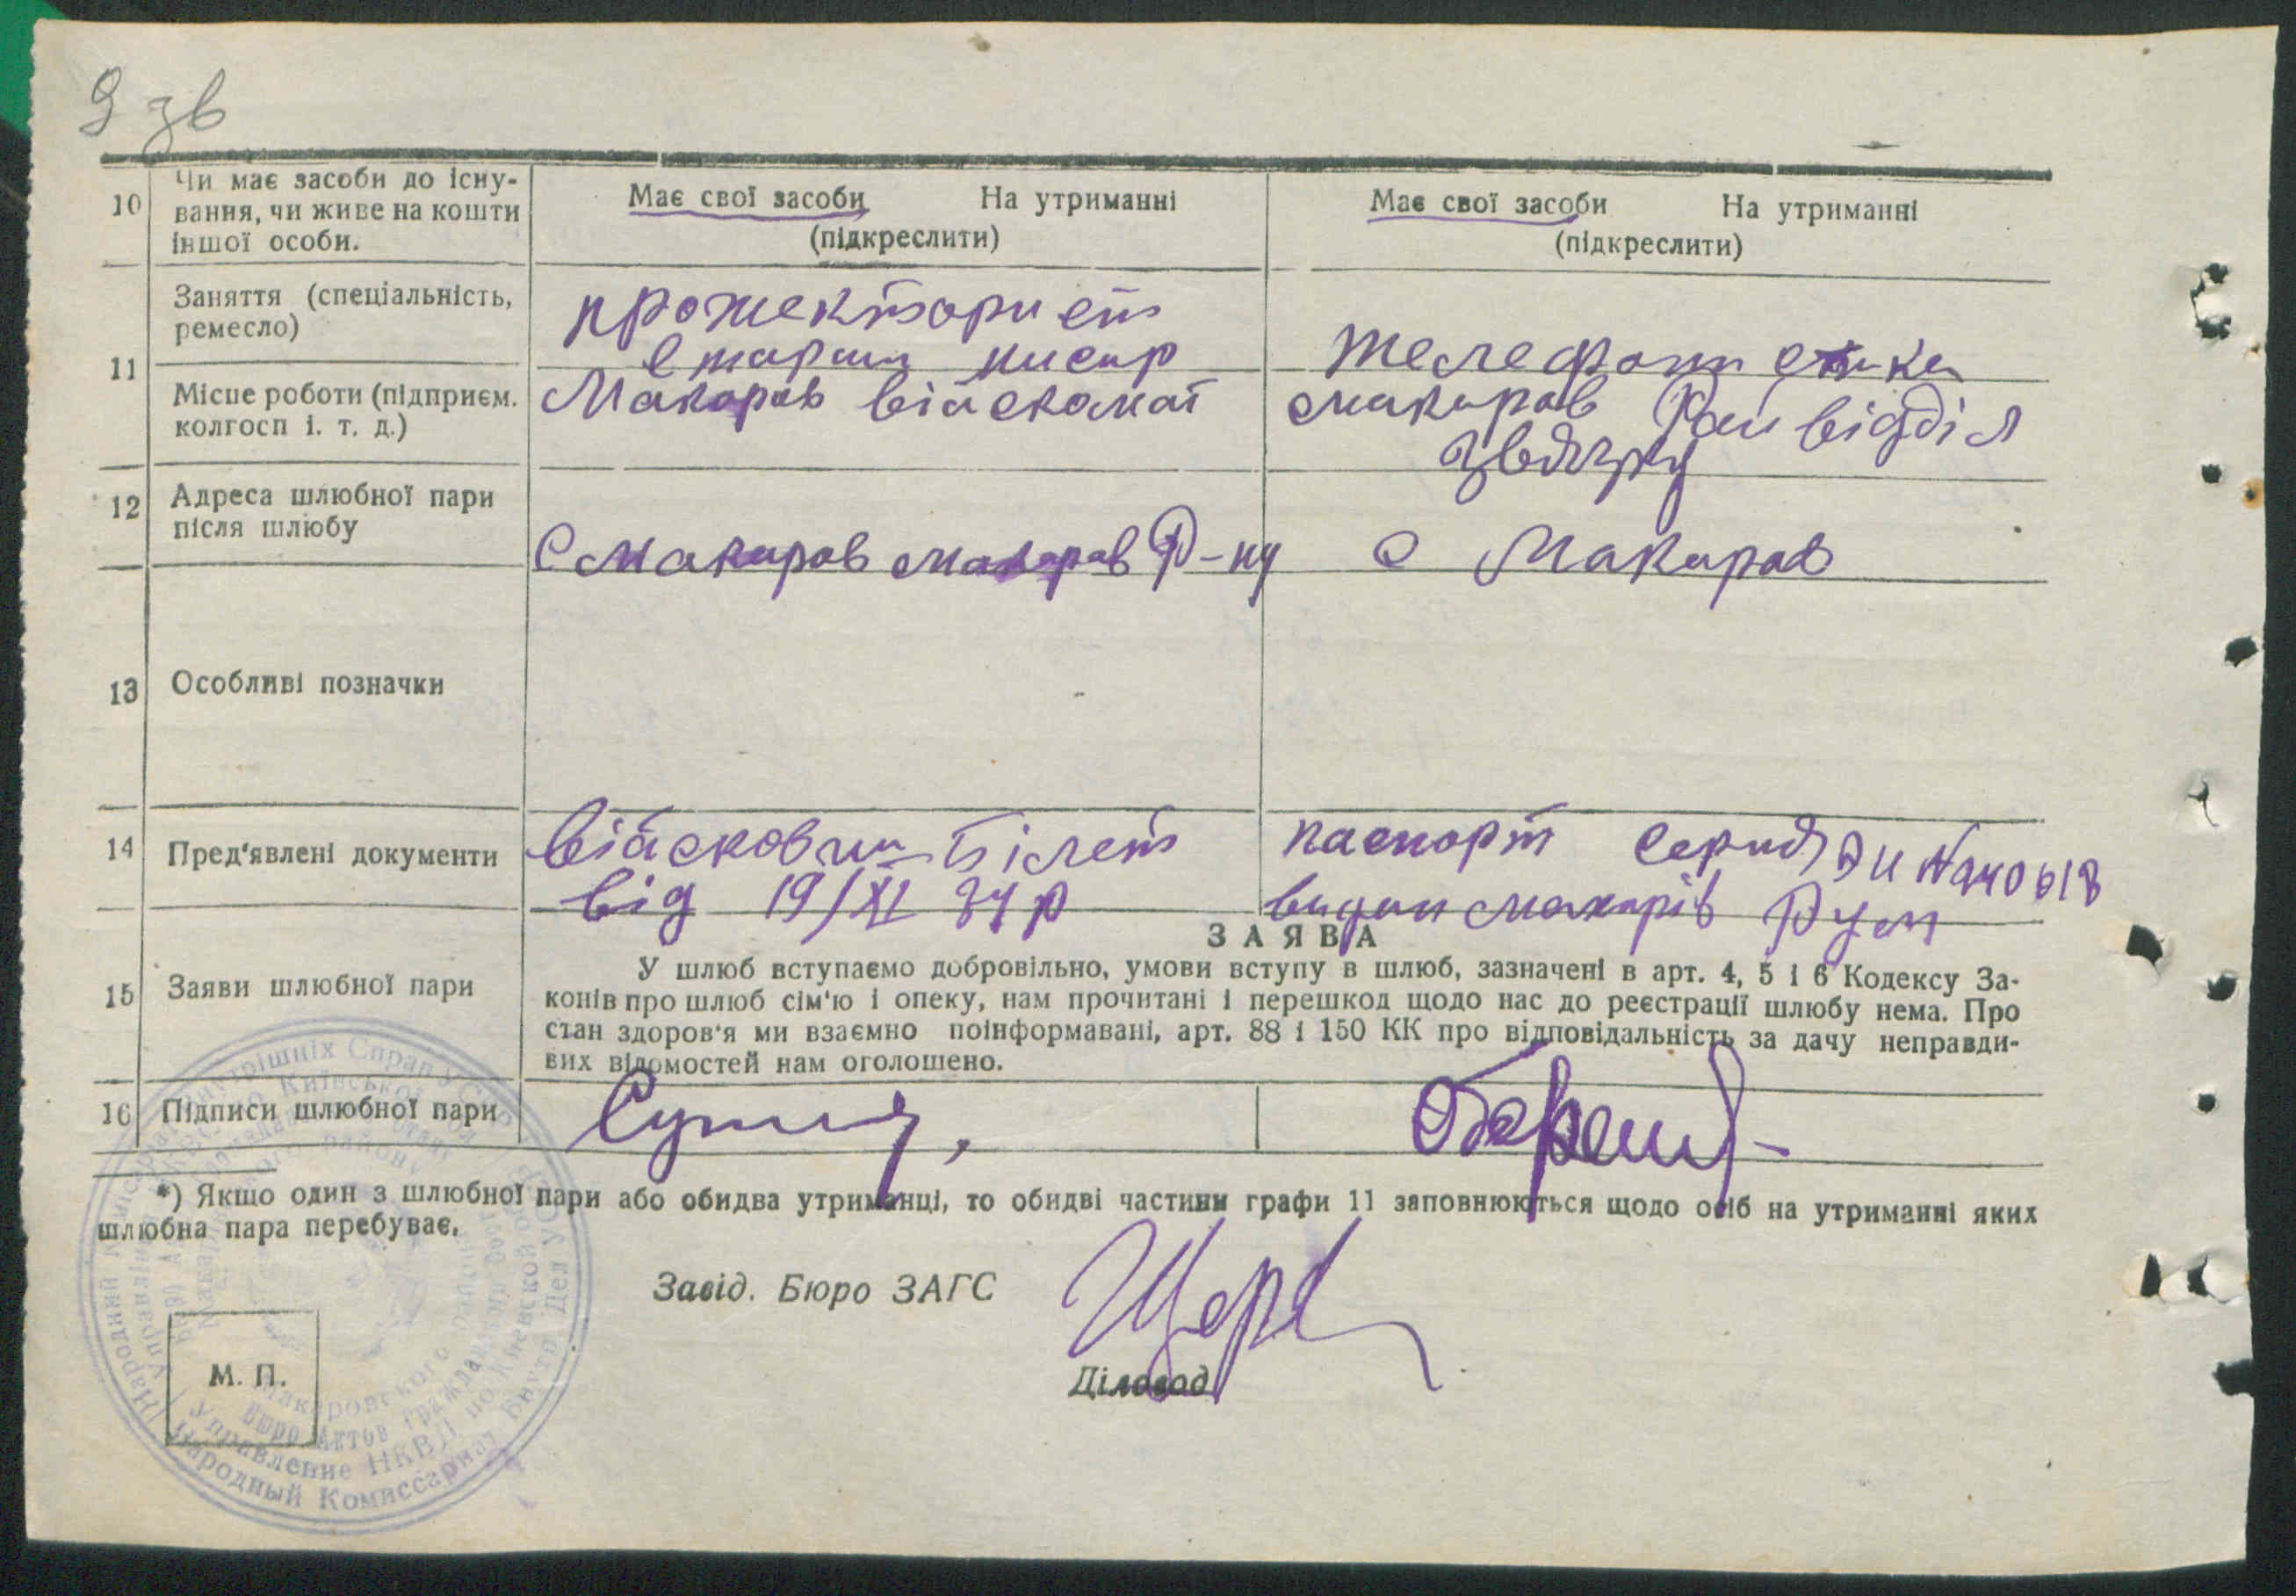 9 зв
10 Чи має засоби до існу-
вання, чи живе на кошти
іншої особи.
Має свої засоби На утриманні
(підкреслити)
Має свої засоби На утриманні
(підкреслити)
11 Заняття (спеціальність,
ремесло)
прожекторист
старши писар
телефонистка
Місце роботи (підприєм.
колгосп і. т. д.)
Макаров війскомат
Макаров Рай відділ
звязку
12 Адреса шлюбної пари
після шлюбу
С Макаров Макаров Р-ну
с Макаров
13 Особливі позначки
14 Пред'явлені документи
військовий білет
від 19/XI 34 р
паспорт серия
видан Макарів Рум
15 Заяви шлюбної пари
ЗАЯВА
У шлюб вступаємо добровільно, умови вступу в шлюб, зазначені в арт. 4, 5 і 6 Кодексу За-
конів про шлюб сім'ю і опеку, нам прочитані і перешкод щодо нас до реєстрації шлюбу нема. Про
стан здоров'я ми взаємно поінформавані, арт. 88 і 150 КК про відповідальність за дачу неправди-
вих відомостей нам оголошено.
16 Підписи шлюбної пари
*) Якщо один з шлюбної пари або обидва утриманці, то обидві частини графи 11 заповнюються щодо осіб на утриманні яких
шлюбна пара перебуває.
Завід. Бюро ЗАГС
Діловод
М. П.
Народный Комиссариат Внутр Дел УССР
Управление НКВД по Киевской обл
Бюро Актов Гражданск
Макаровского